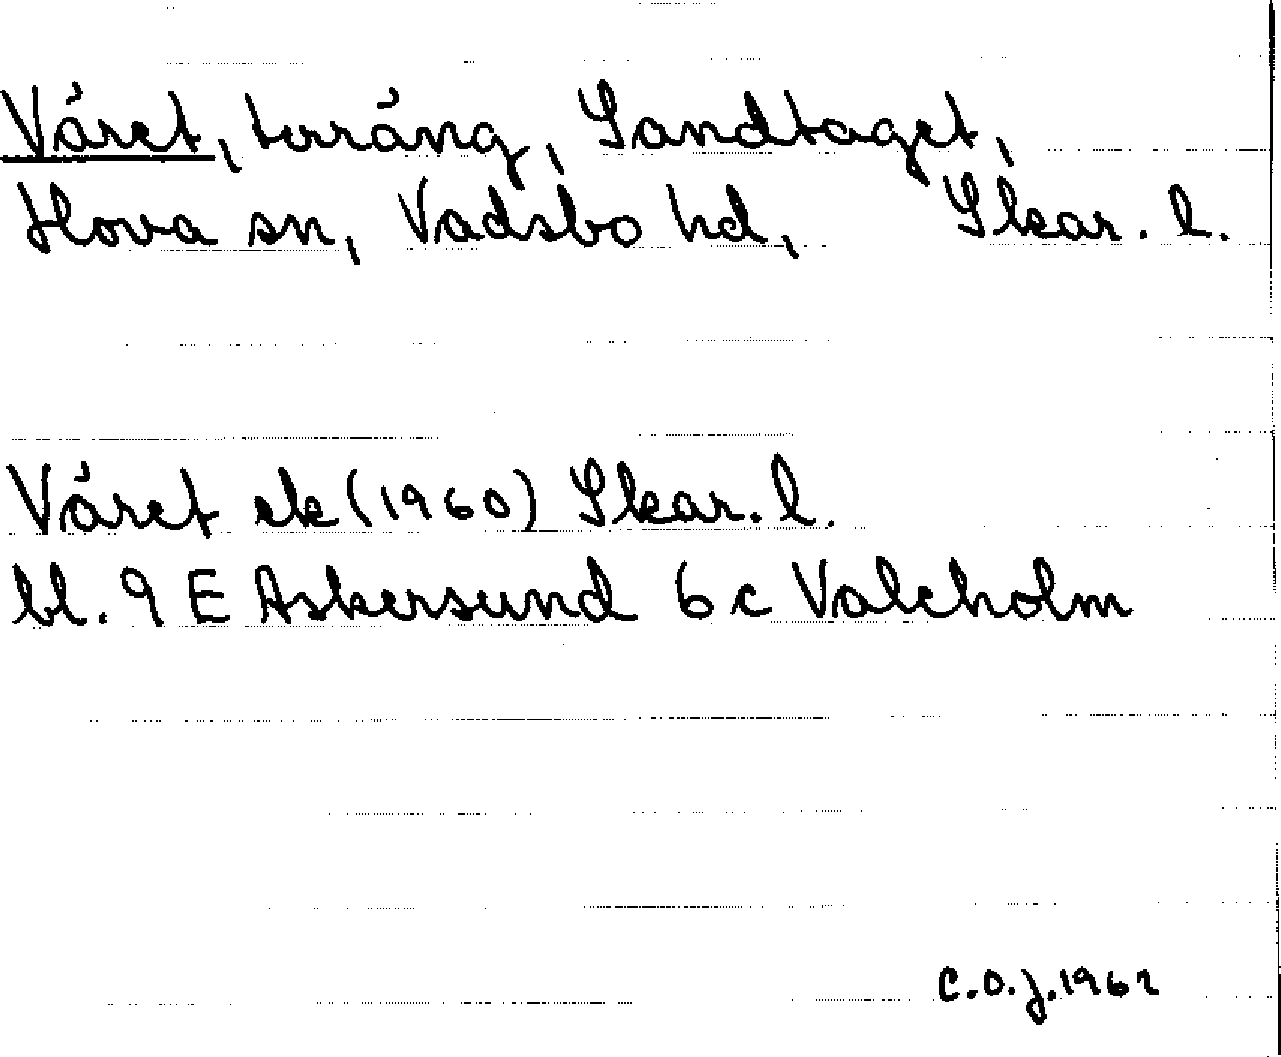 Väret, terräng, Sandtaget,
Hova sn, Vadsbo hd, Skar. l.
Väret ek (1960) Skar. l.
bl. 9 E Askersund 6 c Valeholm
C.O.J. 1962